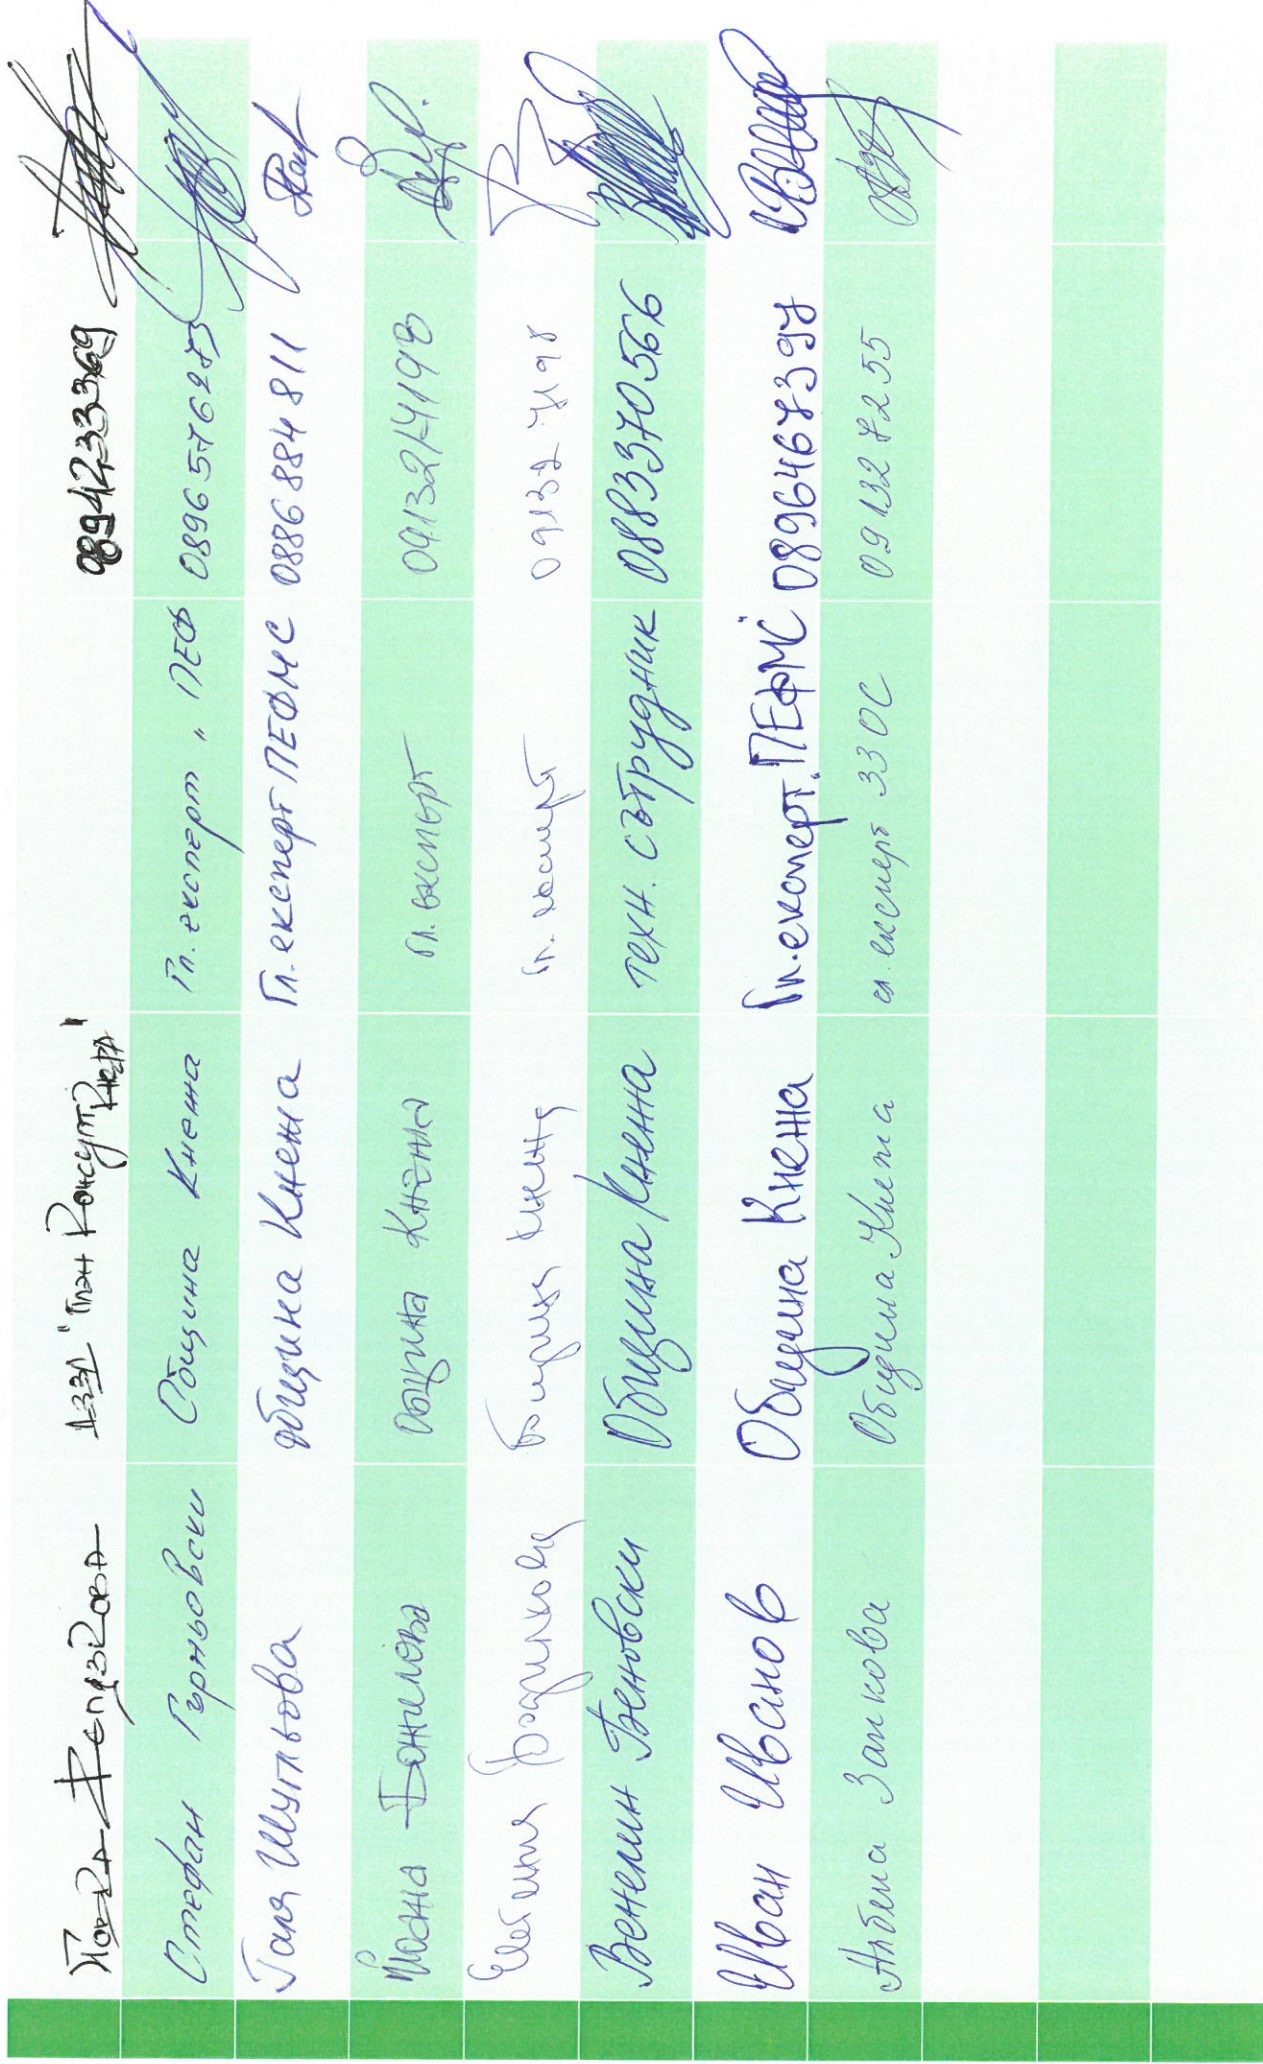 ДЗЗД "План Консулт" 0894233369
Стефан Гърньовски Община Кнежа Гл. експерт „ ПЕФ 0896576273
Галя Шутльова Община Кнежа Гл. експерт ПЕФМС 0886884811
Бонилова Община Кнежа Гл. експерт 09132/
Община Кнежа Гл. експерт 09132 7198
Венелин Беновски Община Кнежа техн. сътрудник 0883370566
Иван Иванов Община Кнежа Гл. експерт „ПЕФМС" 0896467397
Албена Занкова Община Кнежа гл. експерт ЗЗОС 09132 7255